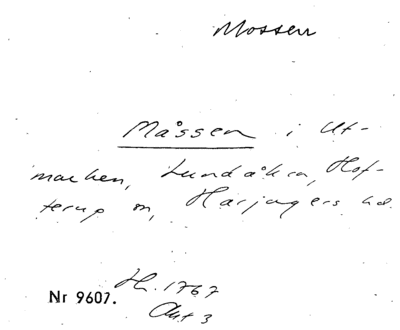 Mossen
Måssen i Ut-
marken, Lundåkra, Hof-
terup sn, Harjagers hd.
Nr 9607.
H. 1767
Akt 3